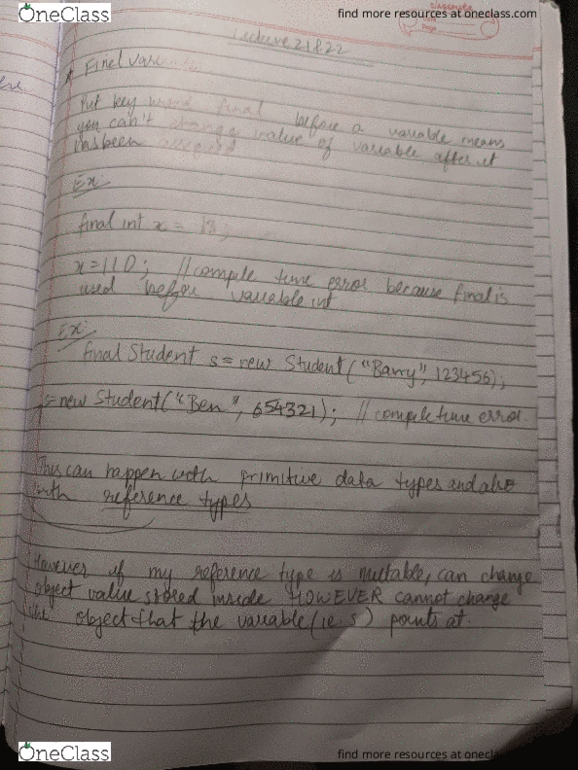 OneClass
find more resources at oneclass.com
Lecture 21 & 22
Final
Put key word final before a variable means
you can't change value of variable after it
has been assigned
Ex:
final int x = 18;
x=110; // compile time error because final is
used before variable int
Ex:
final Student s = new Student("Barry", 123456);
s=new Student("Ben", 654321); // compile time error.
This can happen with primitive data types and also
with reference types
However if my reference type is mutable, can change
object value stored inside HOWEVER cannot change
the object that the variable (i.e. s) points at.
OneClass
find more resources at oneclass.com